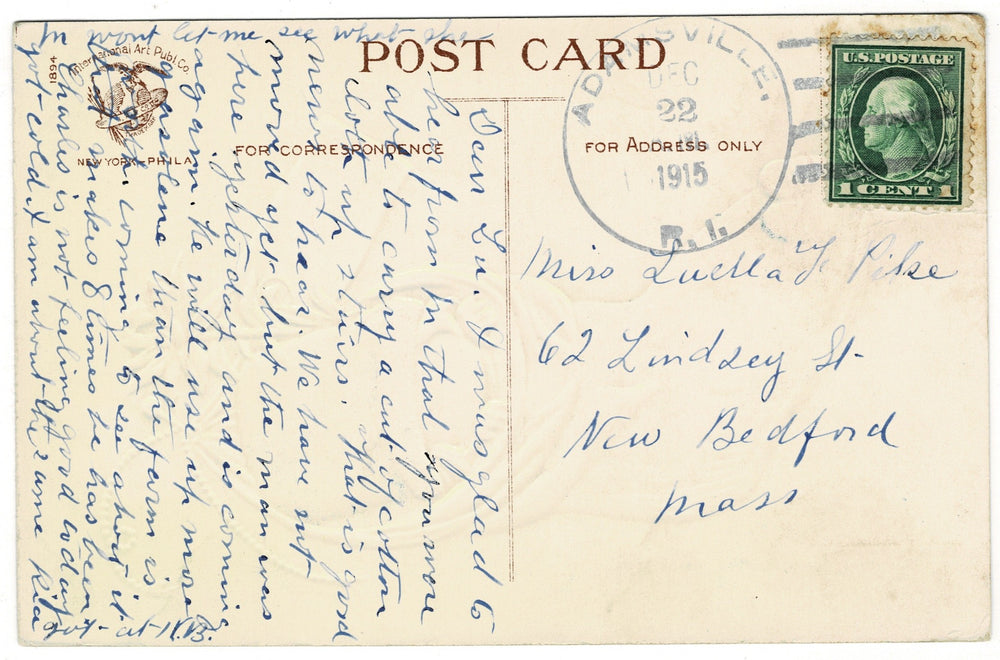 POST CARD
1894
International Art Publ. Co.
NEW YORK - PHILA
FOR CORRESPONDENCE
FOR ADDRESS ONLY
ADAMSVILLE,
DEC
22
1915
R.I.
U.S. POSTAGE
1 CENT 1
Miss Luella Y Pike
62 Lindsey St-
New Bedford
Mass
Dear Lu. I was glad to
hear from M that you were
able to carry a cut of cotton
cloth up stairs. That is good
news to hear. We have not
moved yet but the man was
here yesterday and is coming
again. he will use up more
gasolene than the farm is
worth coming to see about it
that makes 8 times he has been
Charles is not feeling good today
got cold I am about the same
M wont let me see what she
got- at N.B.